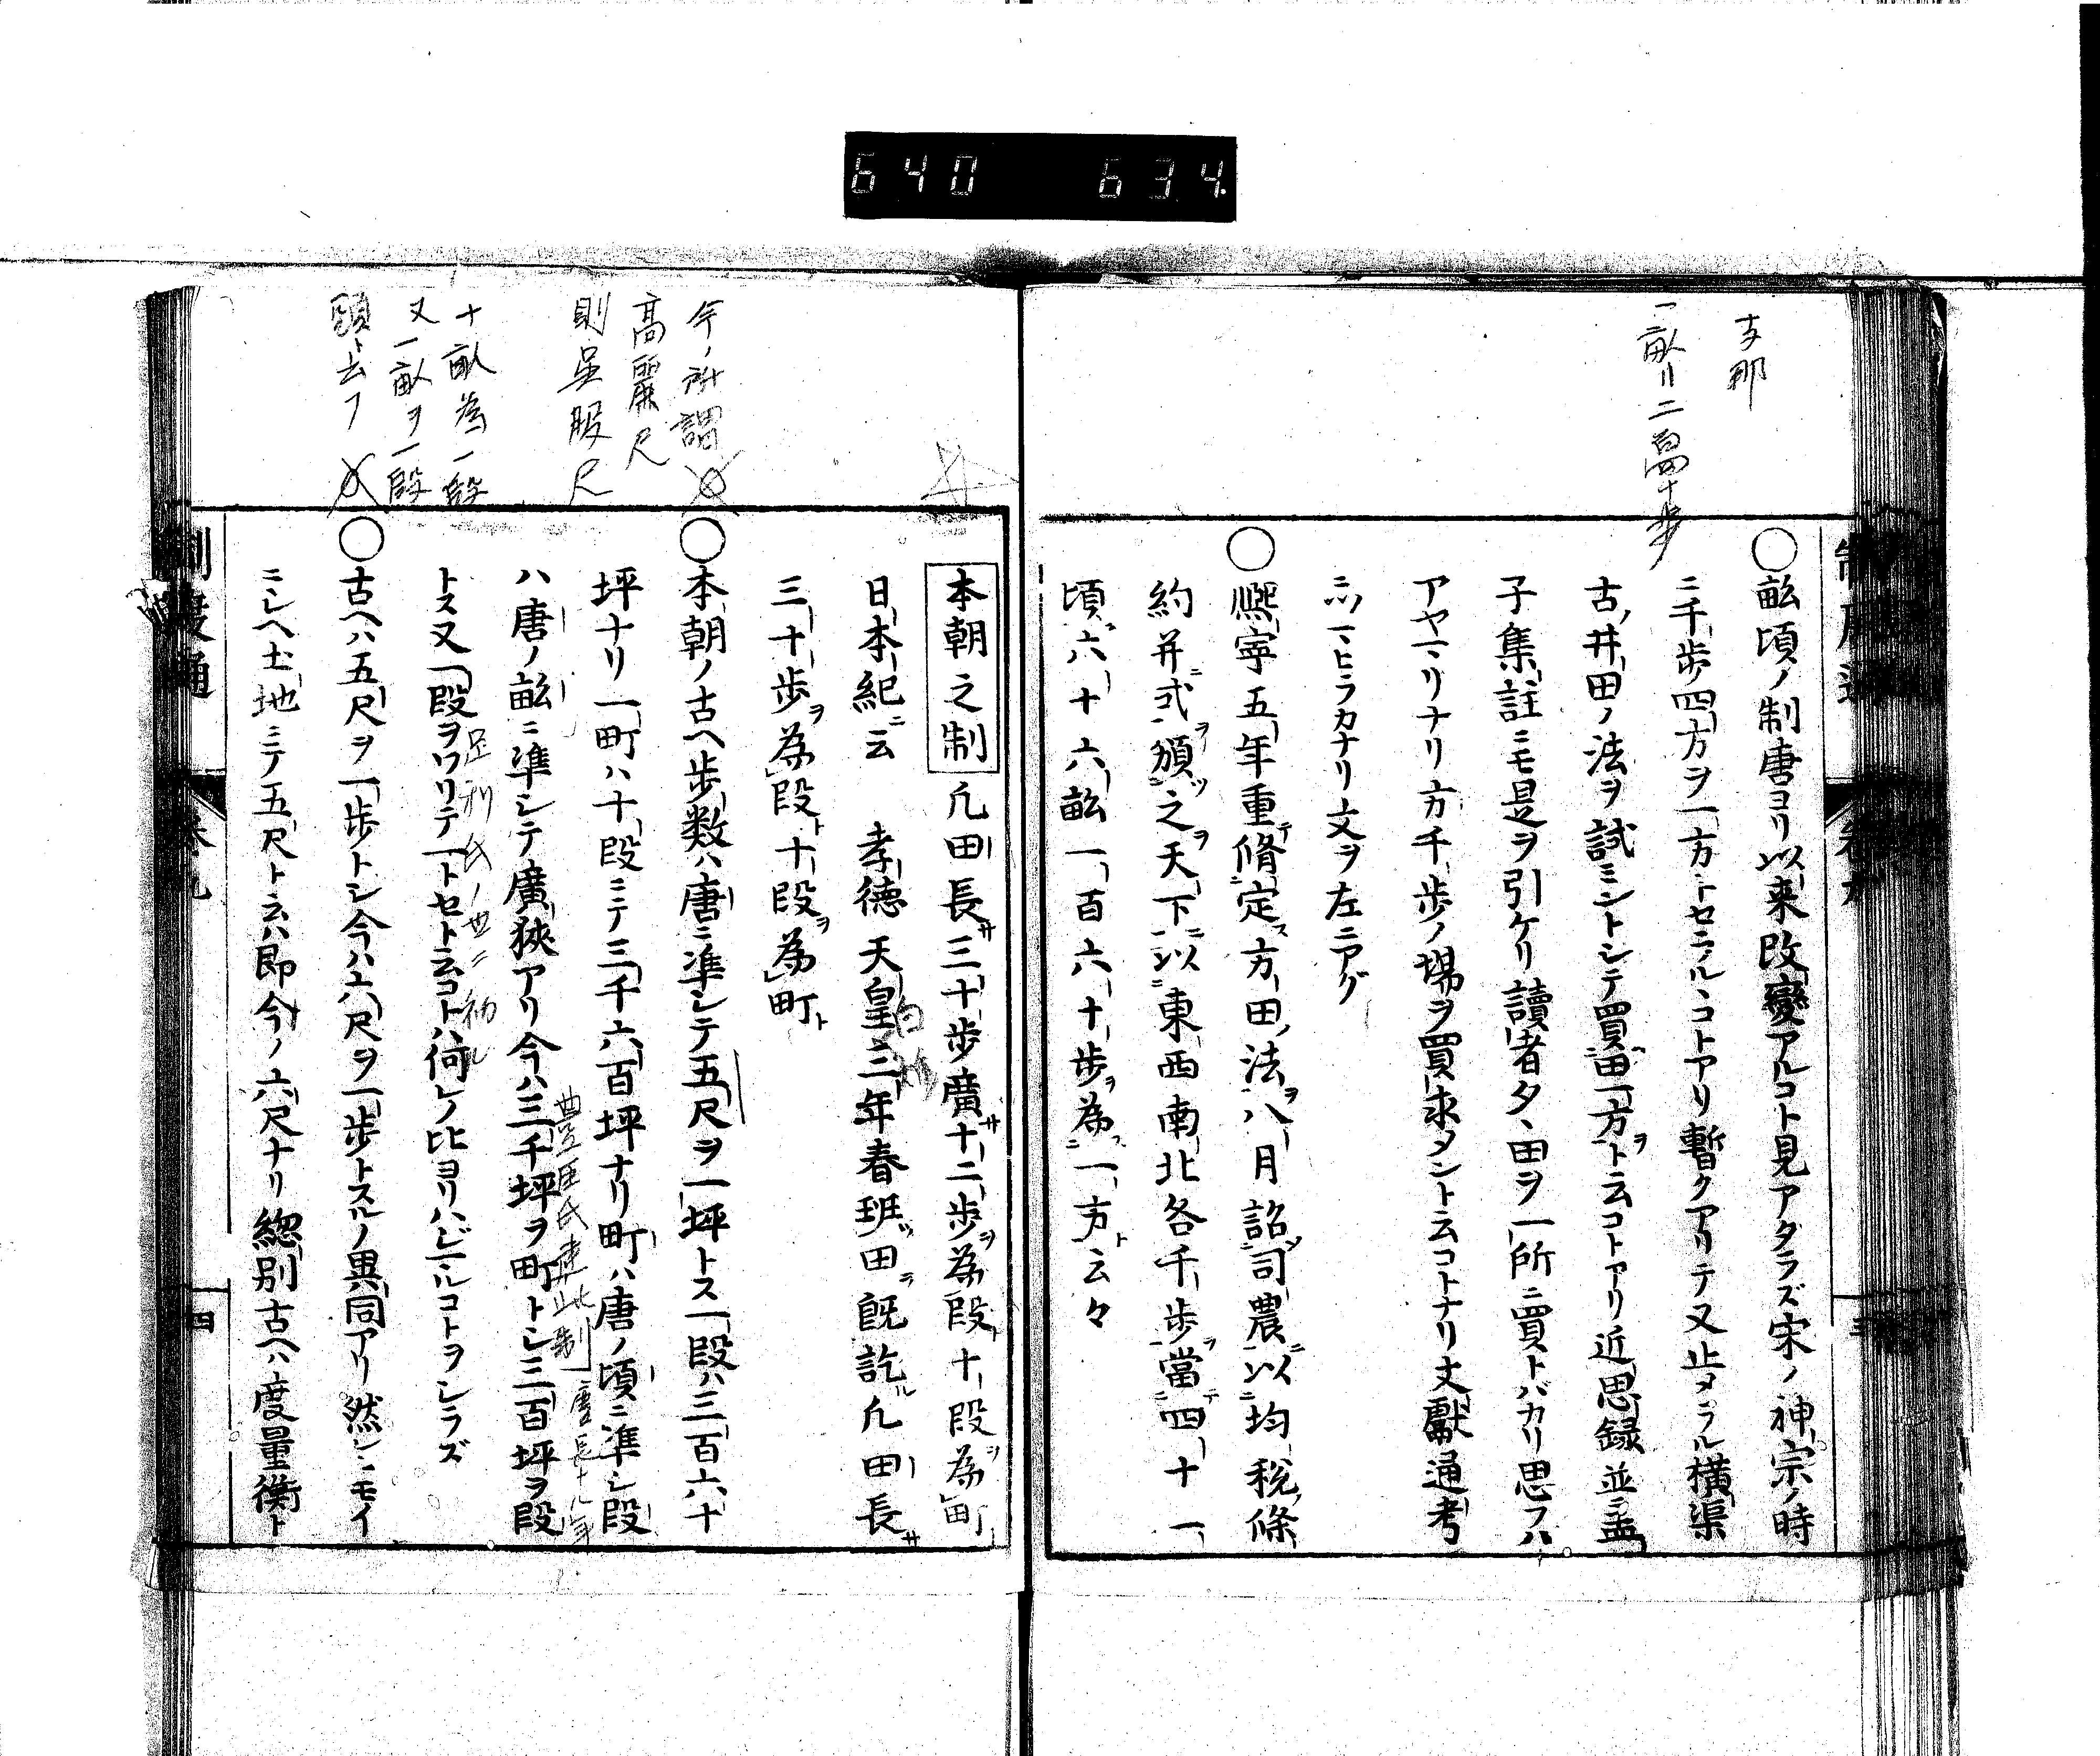 640 634
支那
一畝リ二百四十歩
○畝頃ノ制唐ヨリ以来改變アルコト見アタラズ宋ノ神宗ノ時
ニ千歩四方ヲ一方トセラルヽコトアリ暫クアリテ又止メラル横渠
古ノ井田ノ法ヲ試ミントシテ買田一方ヲト云コトアリ近思録並ニ孟
子集註ニモ是ヲ引ケリ讀者タヽ田ヲ一所ニ買トバカリ思フハ
アヤマリナリ方千歩ノ場ヲ買求メント云コトナリ文獻通考
ニツマヒラカナリ文ヲ左ニアグ
○熈寧五年重脩定方田法八月詔司農以均税條
約并式頒之天下以東西南北各千歩當四十一
頃六十六畝一百六十歩為一方云々
制度通 巻九 四
本朝之制 凡田長三十歩廣十二歩為段十段為町
日本紀云 孝徳天皇三年春班田既訖凡田長
三十歩為段十段為町
○本朝ノ古ヘ歩数ハ唐ニ凖シテ五尺ヲ一坪トス一段ハ三百六十
坪ナリ一町ハ十段ニテ三千六百坪ナリ町ハ唐ノ頃ニ凖シ段
ハ唐ノ畝ニ凖シテ廣狹アリ今ハ三千坪ヲ町トシ三百坪ヲ段
トス又一段ヲワリテ一トセト云コトハ何レノ比ヨリハジマルコトヲシラズ
○古ヘハ五尺ヲ一歩トシ今ハ六尺ヲ一歩トスルノ異同アリ然レモイ
ニシヘ土地ニテ五尺ト云ハ即今ノ六尺ナリ總別古ヘハ度量衡ト
今ノ所謂
高麗尺
則呉服尺
十畝為一段
又一畝ヲ一段
頭ト云フ
白雉
足利氏ノ世ニ初レ
豊臣氏建此制
慶長十九年